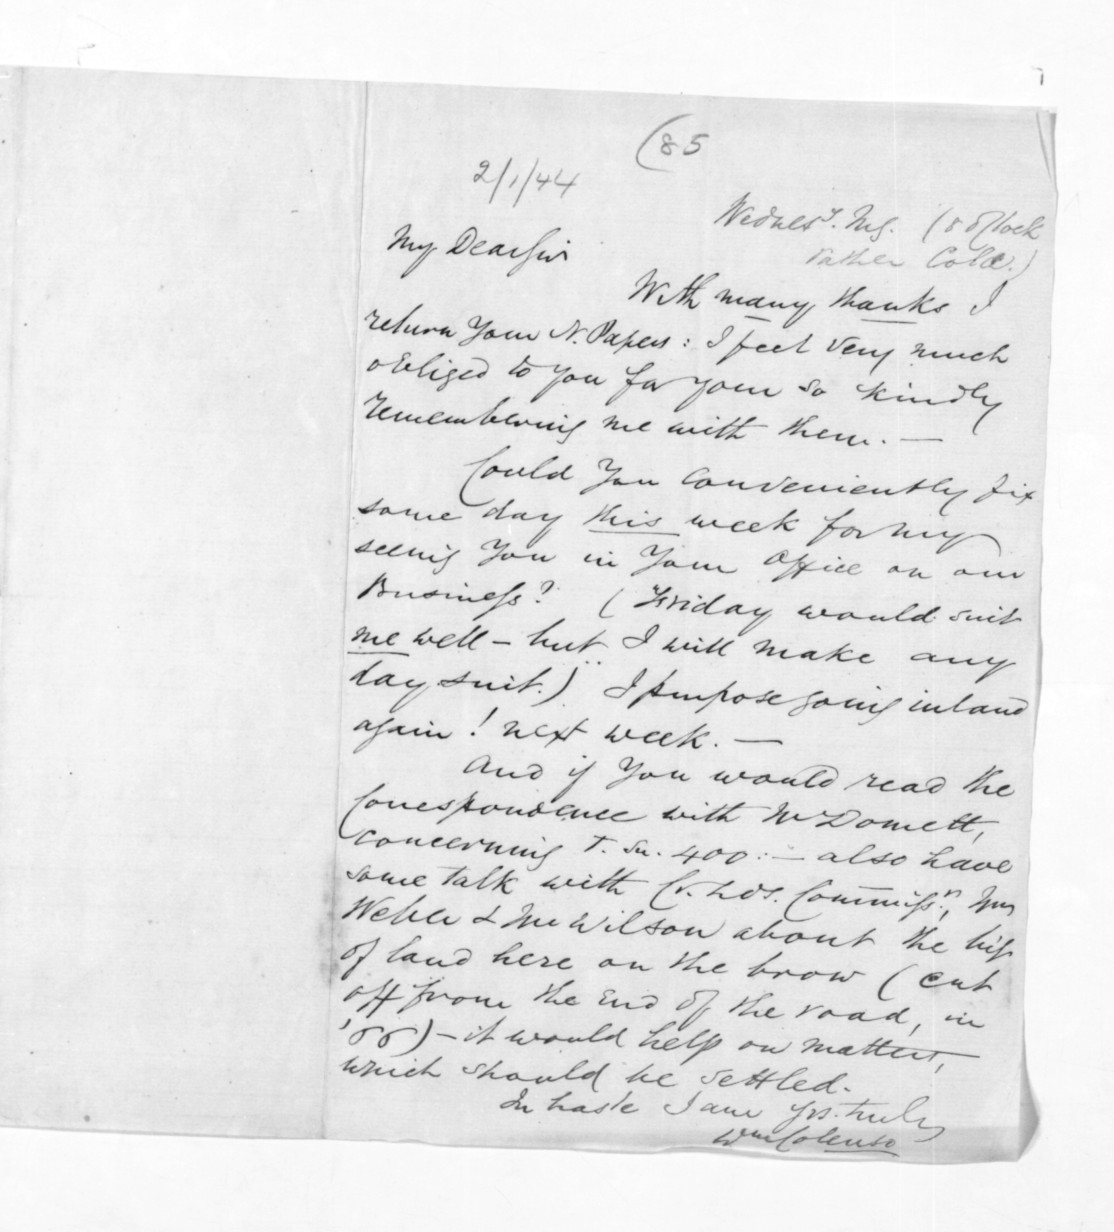 (85
2/1/44
Wednesy. Mg. (8 o'Clock
rather Cold.)
My Dear Sir
With many thanks I
return your N. Papers: I feel very much
obliged to you for your so kindly
remembering me with them. —
Could you conveniently fix
some day this week for my
seeing you in your Office on our
Business? (Friday would suit
me well – but I will make any
day suit.) I purpose going inland
again! next week. —
And if you would read the
Correspondence with Mr Domett,
concerning T. Sn. 400: – also have
some talk with Cr. Lds. Commissr.,
Weber & Mr Wilson about the
of land here on the brow (cut
off from the End of the road, in
'66) – it would help on matters,
which should be settled.
In haste I am yrs. truly
Wm Colenso